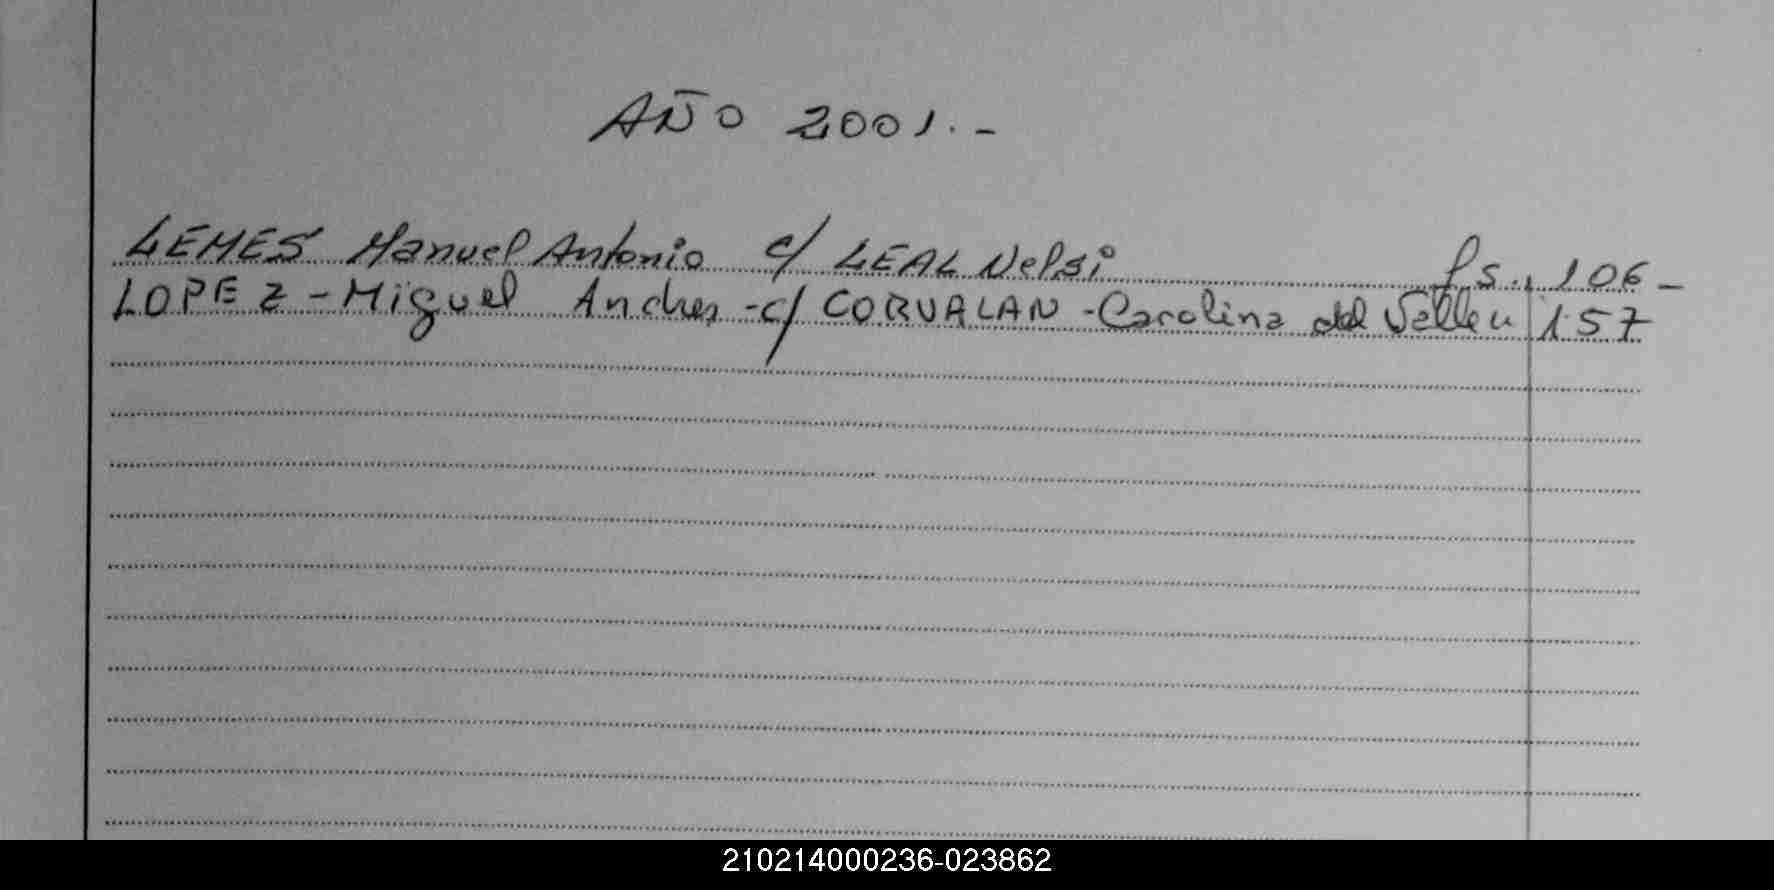 AÑO 2001.-
LEMES Manuel Antonio c/ LEAL Nelsi fs. 106-
LOPEZ - Miguel Andres - c/ CORVALAN - Carolina del Valle 157
210214000236-023862